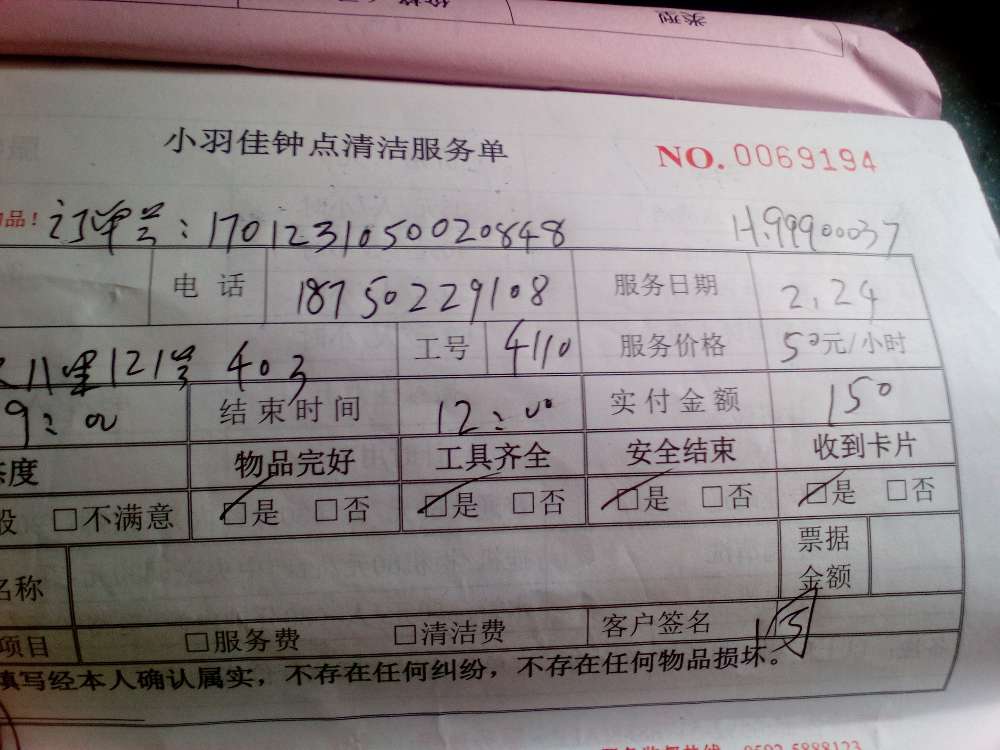 类型
小羽佳钟点清洁服务单 NO.0069194
品！ 订单号：17012310500020848 H.99900037
电 话 18750229108 服务日期 2.24
八里121号 403 工号 4110 服务价格 50元/小时
9:00 结束时间 12:00 实付金额 150
态度 物品完好 工具齐全 安全结束 收到卡片
般 □不满意 □是 □否 □是 □否 □是 □否 □是 □否
名称 票据
金额
项目 □服务费 □清洁费 客户签名
填写经本人确认属实，不存在任何纠纷，不存在任何物品损坏。
0592-5888123